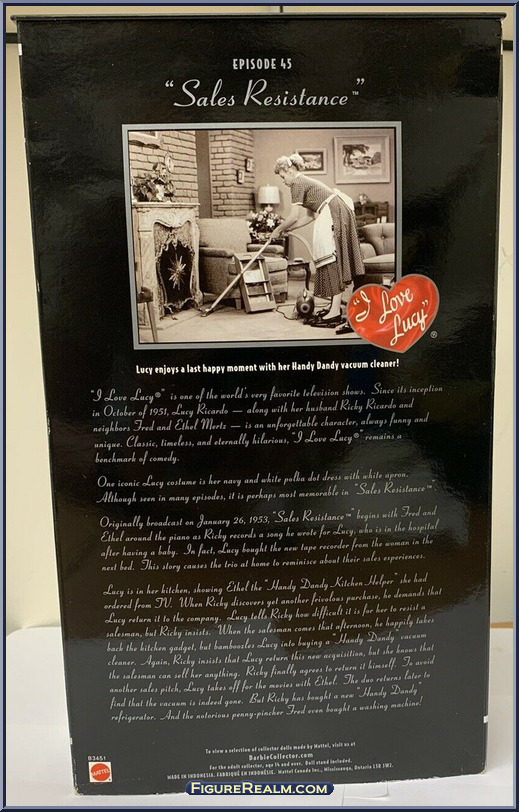 EPISODE 45
"Sales Resistance"™
"I Love Lucy"®
Lucy enjoys a last happy moment with her Handy Dandy vacuum cleaner!
"I Love Lucy®" is one of the world's very favorite television shows. Since its inception
in October of 1951, Lucy Ricardo — along with her husband Ricky Ricardo and
neighbors Fred and Ethel Mertz — is an unforgettable character, always funny and
unique. Classic, timeless, and eternally hilarious, "I Love Lucy®" remains a
benchmark of comedy.
One iconic Lucy costume is her navy and white polka dot dress with white apron.
Although seen in many episodes, it is perhaps most memorable in "Sales Resistance™"
Originally broadcast on January 26, 1953, "Sales Resistance™" begins with Fred and
Ethel around the piano as Ricky records a song he wrote for Lucy, who is in the hospital
after having a baby. In fact, Lucy bought the new tape recorder from the woman in the
next bed. This story causes the trio at home to reminisce about their sales experiences.
Lucy is in her kitchen, showing Ethel the "Handy Dandy Kitchen Helper" she had
ordered from TV. When Ricky discovers yet another frivolous purchase, he demands that
Lucy return it to the company. Lucy tells Ricky how difficult it is for her to resist a
salesman, but Ricky insists. When the salesman comes that afternoon, he happily takes
back the kitchen gadget, but bamboozles Lucy into buying a "Handy Dandy" vacuum
cleaner. Again, Ricky insists that Lucy return this new acquisition, but she knows that
the salesman can sell her anything. Ricky finally agrees to return it himself. To avoid
another sales pitch, Lucy takes off for the movies with Ethel. The duo returns later to
find that the vacuum is indeed gone. But Ricky has bought a new "Handy Dandy"
refrigerator. And the notorious penny-pincher Fred even bought a washing machine!
To view a selection of collector dolls made by Mattel, visit us at
BarbieCollector.com
For the adult collector, age 14 and over. Doll stand included.
MADE IN INDONESIA. FABRIQUÉ EN INDONÉSIE. Mattel Canada Inc., Mississauga, Ontario L5R 3W2.
B3451
MATTEL
FIGUREREALM.COM